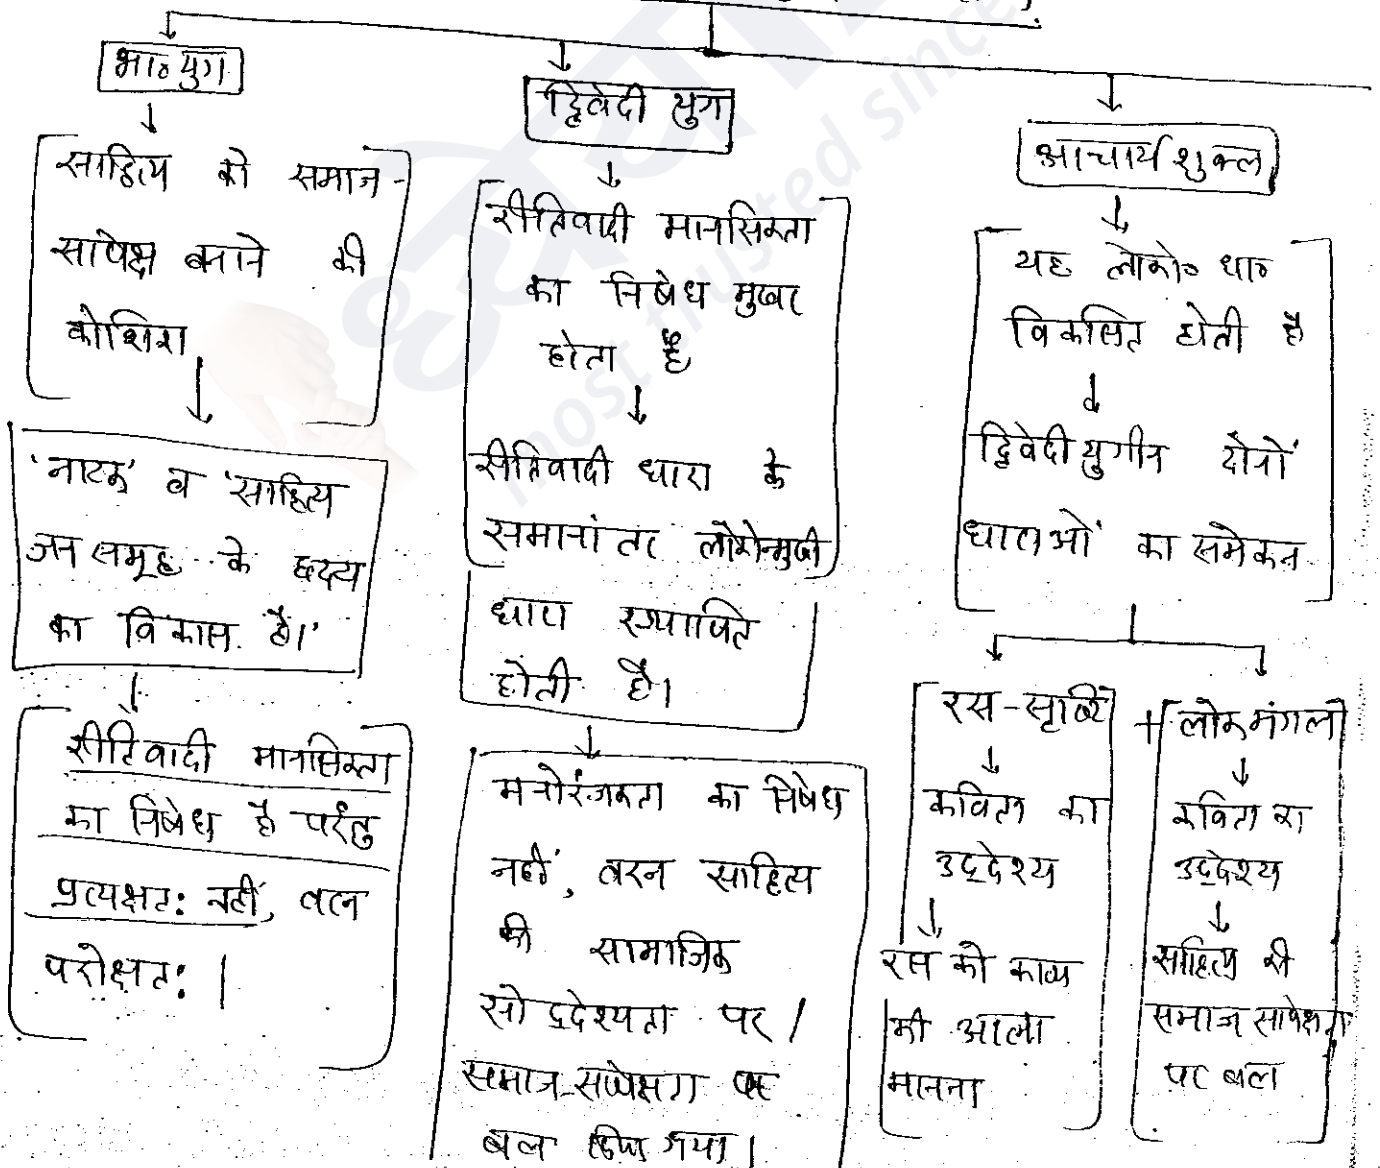 भा० युग
साहित्य को समाज-
सापेक्ष बनाने की
कोशिश
'नाटक' व 'साहित्य
जन समूह के हृदय
का विकास है।'
रीतिवादी मानसिकता
का निषेध है परंतु
प्रत्यक्षतः नहीं, वरन
परोक्षतः।
द्विवेदी युग
रीतिवादी मानसिकता
का निषेध मुखर
होता है
रीतिवादी धारा के
समानांतर लोकोन्मुखी
धारा स्थापित
होती है।
मनोरंजकता का निषेध
नहीं, वरन साहित्य
की सामाजिक
सोद्देश्यता पर /
समाज-सापेक्षता पर
बल दिया गया।
आचार्य शुक्ल
यह लोको० धा०
विकसित होती है
द्विवेदी युगीन दोनों
धाराओं का समेकन
रस-सृष्टि
कविता का
उद्देश्य
रस को काव्य
की आत्मा
मानना
+ लोकमंगल
कविता का
उद्देश्य
साहित्य की
समाज सापेक्षता
पर बल
most trusted since